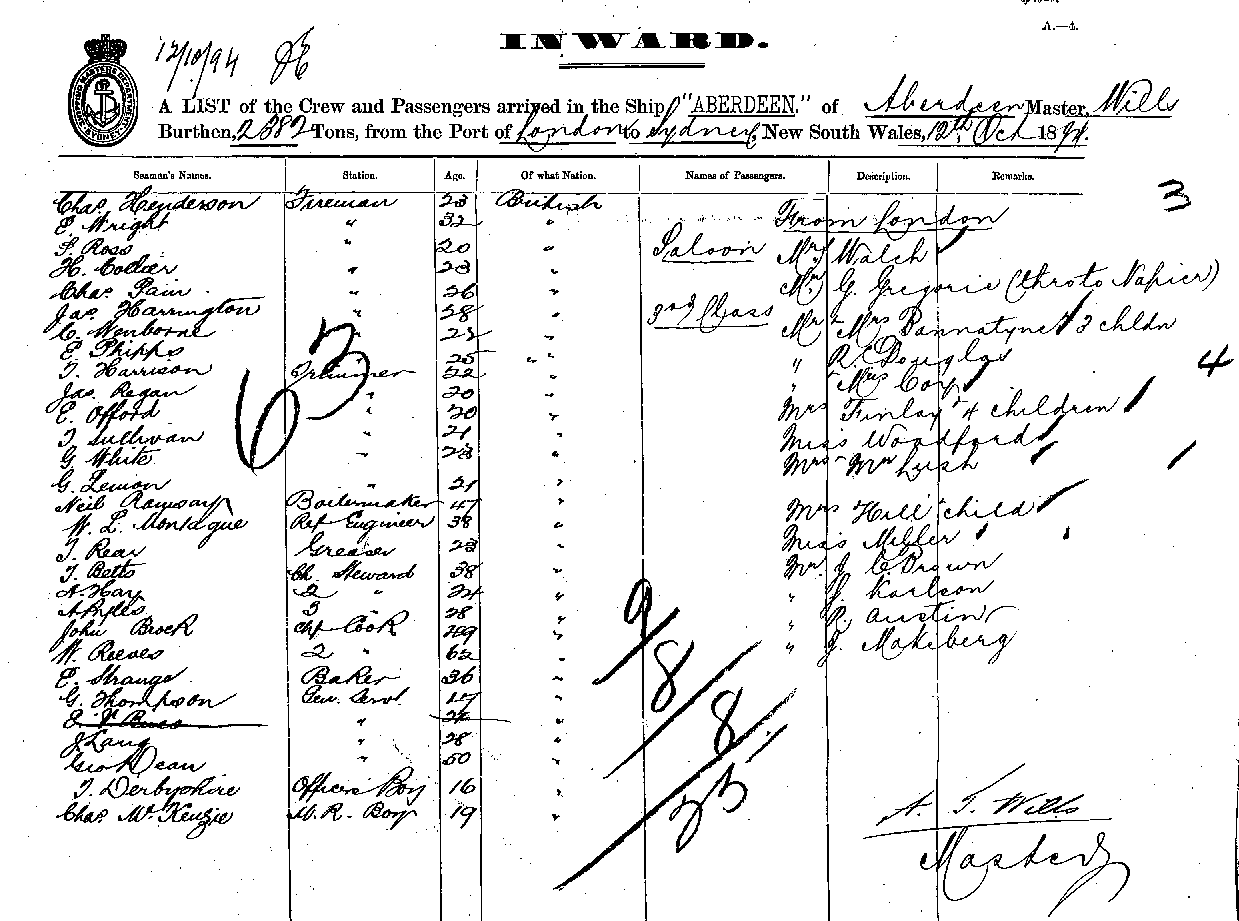 A.—4.
12/10/94
INWARD.
A LIST of the Crew and Passengers arrived in the Ship "ABERDEEN." of Aberdeen Master, Wills
Burthen, 2382 Tons, from the Port of London to Sydney, New South Wales, 12th Oct 1894.
Seaman's Names. Station. Age. Of what Nation. Names of Passengers. Description. Remarks.
Chas. Henderson Fireman 23 British
E. Wright " 32 "
S. Ross " 20 "
H. Collier " 23 "
Chas. Pain " 26 "
Jas. Harrington " 28 "
C. Wenborne "
E. Phipps 25 "
T. Harrison Trimmer 22 "
Jas. Regan " 20 "
E. Offord " 20 "
T. Sullivan " 21 "
G. White " 23 "
G. Lemon 21 "
Neil Ramsay Boilermaker 47 "
W. L. Montague Ref Engineer 38 "
T. Rear Greaser 23 "
T. Betts Ch. Steward 38 "
A. Hay 2 " 24 "
3 " 28 "
John Brock Chf Cook "
W. Reeves 2 " 62 "
E. Strange Baker 36 "
G. Thompson Gen. Servt 17 "
J. Lang " 28 "
Geo Dean " 50 "
T. Derbyshire Officers Boy 16 "
Chas. McKenzie M.R. Boy 19 "
63
From London
3
Saloon Mrs Walch
G. Gregorie (thro to Napier)
3rd Class Mr & Mrs Bannatyne & 3 chldn
" R. Douglas
4
" Mrs Cory
Mrs Finlay & 4 children
Miss Woodford
Mrs Lush
Mrs Hill & child
Miss Miller
Mr. J. C. Brown
" J. Karlson
" R. Austin
" J. Makeberg
9/
8/
8/
A. T. Wills
Master